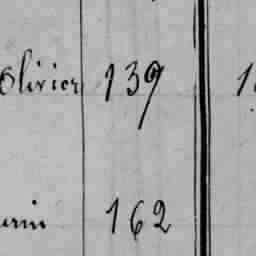 Olivier 139 1
162